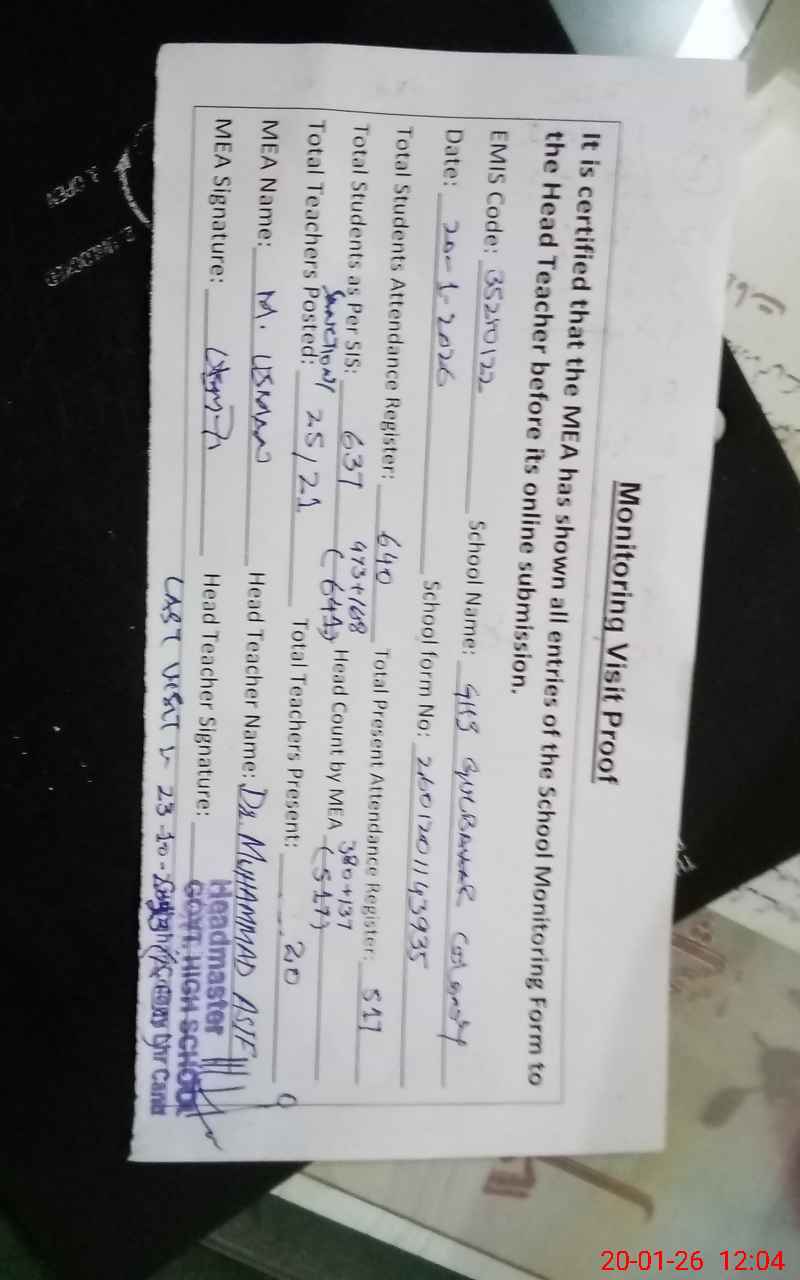 Monitoring Visit Proof
It is certified that the MEA has shown all entries of the School Monitoring Form to
the Head Teacher before its online submission.
EMIS Code: 35210122 School Name: GHS GULBAHAR Colony
Date: 20-1-2026 School form No: 2601201143935
Total Students Attendance Register: 640 Total Present Attendance Register: 517
473+168 380+137
Total Students as Per SIS: 637 (641) Head Count by MEA (517)
Sanction/
Total Teachers Posted: 25/21 Total Teachers Present: 20
MEA Name: M. USMAN Head Teacher Name: Dr. MUHAMMAD ASIF
MEA Signature: Head Teacher Signature:
Headmaster
GOVT. HIGH SCHOOL
LAST VISIT :- 23-10-
Lhr Cantt
20-01-26 12:04